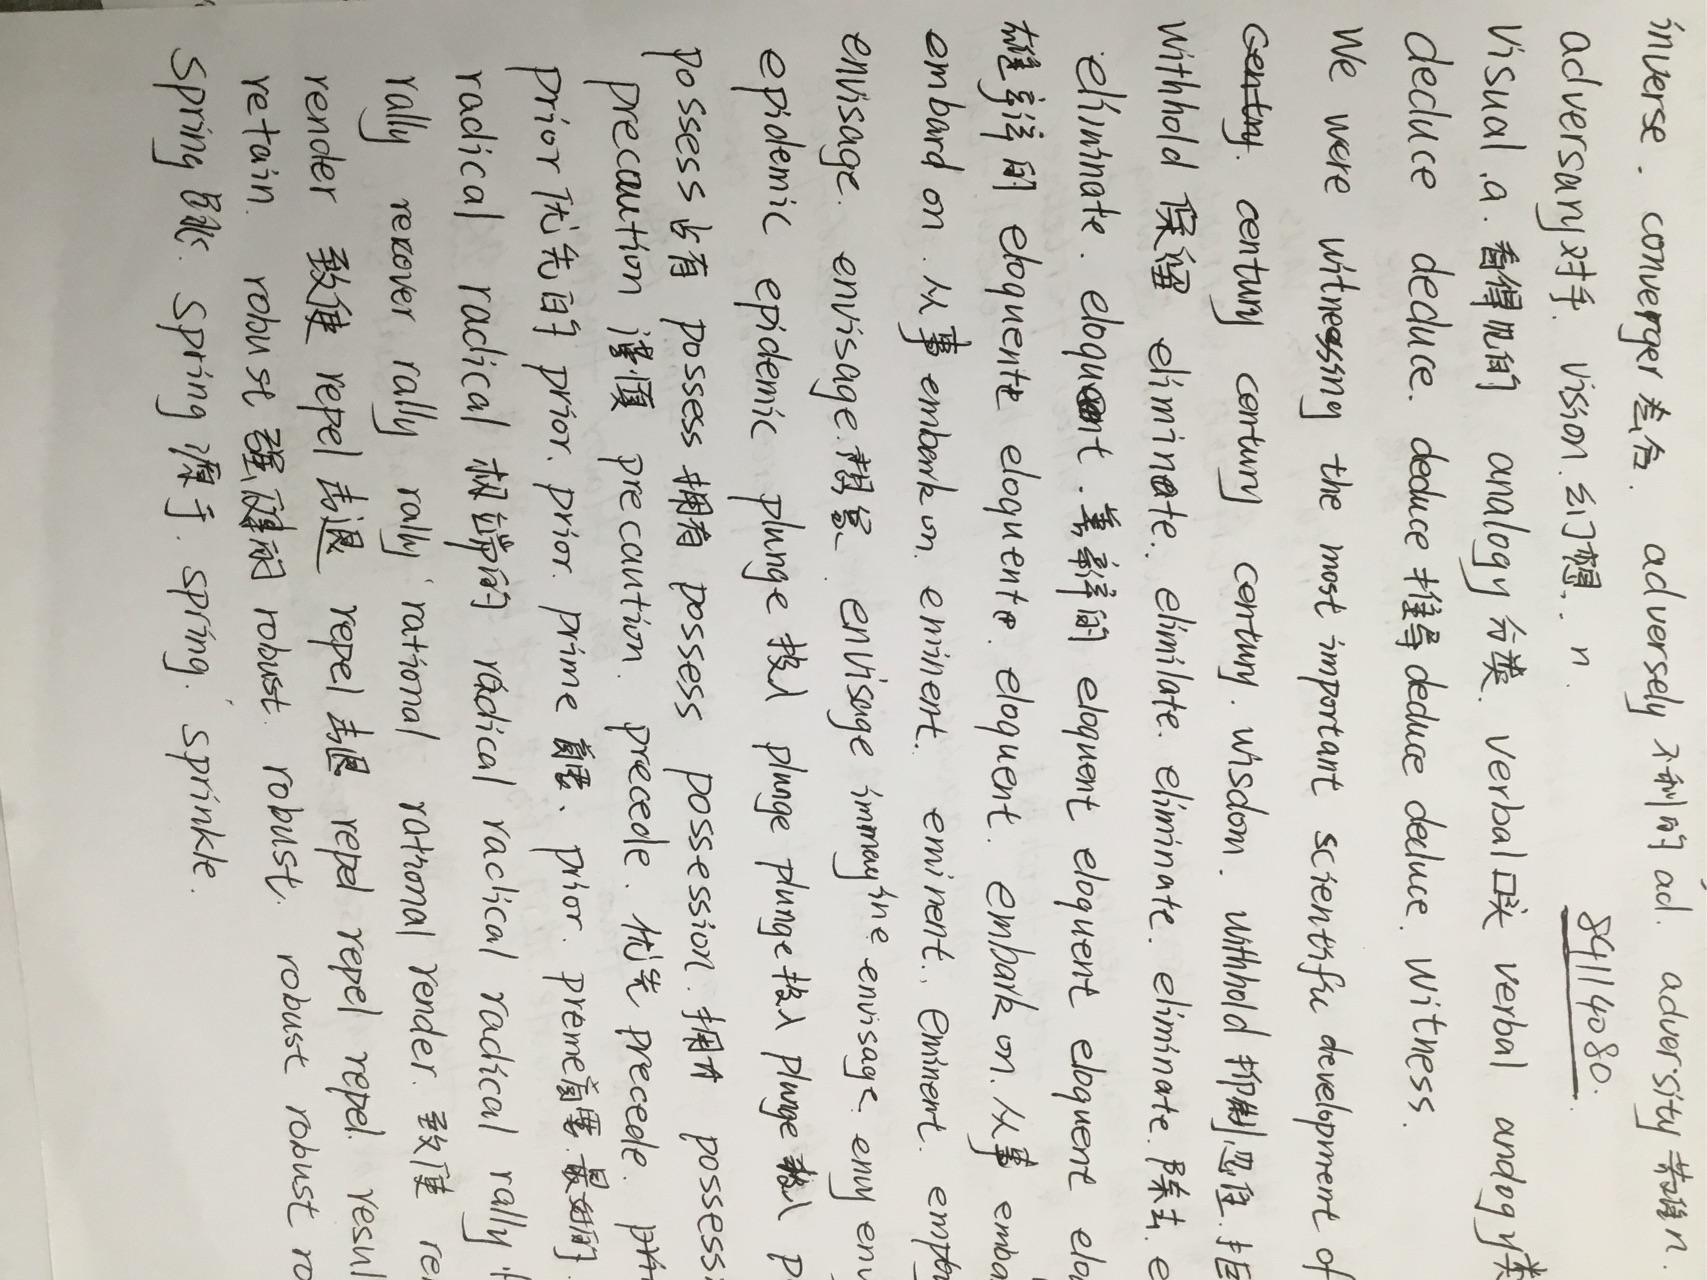 inverse. converger 老合. adversely 不利的 ad. adversity 苦难 n.
adversary 对手. vision. 幻想. n. 84114080.
Visual .a. 看得见的 analogy 分类. verbal 口头 verbal analogy 类
deduce deduce. deduce 推导 deduce deduce. witness.
We were witnessing the most important scientific development of
century century century. wisdom. withhold 抑制,忍住.
withhold 保留 eliminate. elimilate. eliminate. eliminate. 除去. e
eliminate. eloquent. 善辩的 eloquent eloquent eloquent elo
雄辩的 eloquente eloquente. eloquent. embark on. 从事 emba
embard on. 从事 embark on. eminent. eminent. eminent. emp
envisage. envisage. 想象. envisage immagine envisage. envy env
epidemic epidemic plunge 投入 plunge plunge 投入 plunge 投入 p
possess 占有 possess 拥有 possess possession. 拥有 possess
precaution 谨慎 precaution. precede. 优先 precede. pri
prior 优先的 prior. prior. prime 首要、prior. preme 首要.最初的
radical radical 极端的 radical radical radical rally
rally recover rally rally rational rational render. 致使 re
render 致使 repel 击退 repel 击退 repel repel repel. resul
retain. robust 强健的 robust. robust. robust robust ro
Spring 春. Spring 弹手. spring. sprinkle.